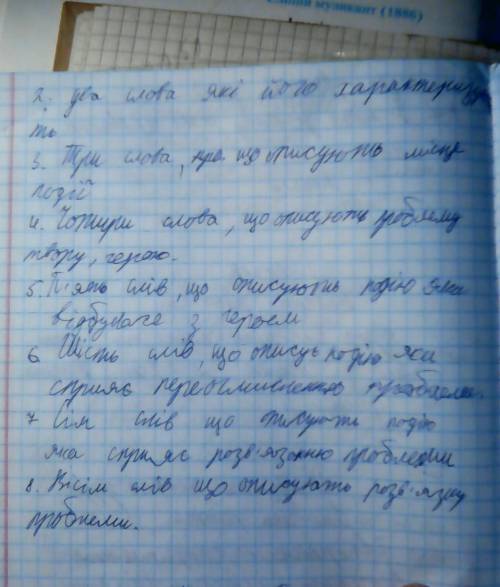 Сліпий музикант (1886)
2. два слова які його характеризу
ть
3. Три слова, що описують місце
події
4. Чотири слова, що описують проблему
твору, героя.
5. П'ять слів, що описують подію яка
відбуваєе з героєм
6 Шість слів, що описує подію яка
сприяє переосмисленню проблеми.
7 Сім слів що описують подію
яка сприяє розв'язанню проблеми
8. Вісім слів що описують розв'язку
проблеми.